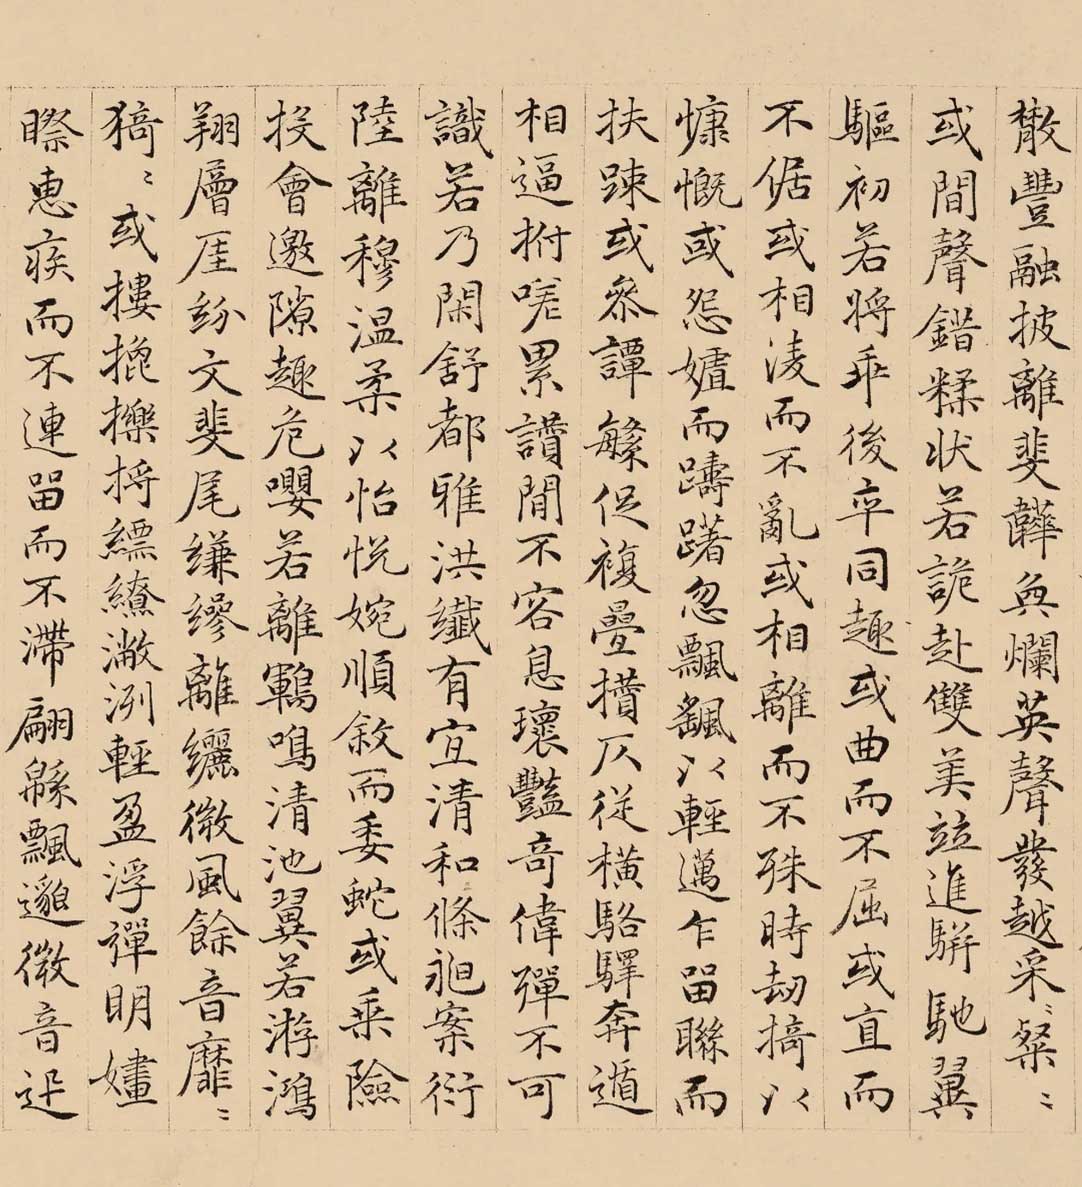 㪚豐融披離斐韡奐爛英聲發越采〻粲〻
或間聲錯糅状若詭赴雙美竝進駢馳翼
驅初若將乖後卒同趣或曲而不屈或直而
不倨或相淩而不亂或相離而不殊時劫掎以
慷慨或怨㜘而躊躇忽飄颻以輕邁乍留聯而
扶疎或參譚繁促複疊攢仄從橫駱驛奔遁
相逼拊嗟累讚間不容息瓌豔奇偉殫不可
識若乃閑舒都雅洪纖有宜清和條昶案衍
陸離穆温柔以怡悅婉順敘而委蛇或乘險
投會邀隙趣危嚶若離鵾鳴清池翼若游鴻
翔層崖紛文斐尾縑縿離纚微風餘音靡〻
猗〻或摟擽捋縹繚潎洌輕盈浮彈明嫿
䁻惠疾而不連留而不滯翩緜飄邈微音迅